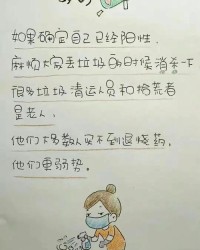 如果确定自己已经阳性，
麻烦大家丢垃圾的时候消杀一下
很多垃圾清运人员和拾荒者
是老人，
他们大多数人买不到退烧药，
他们更弱势。